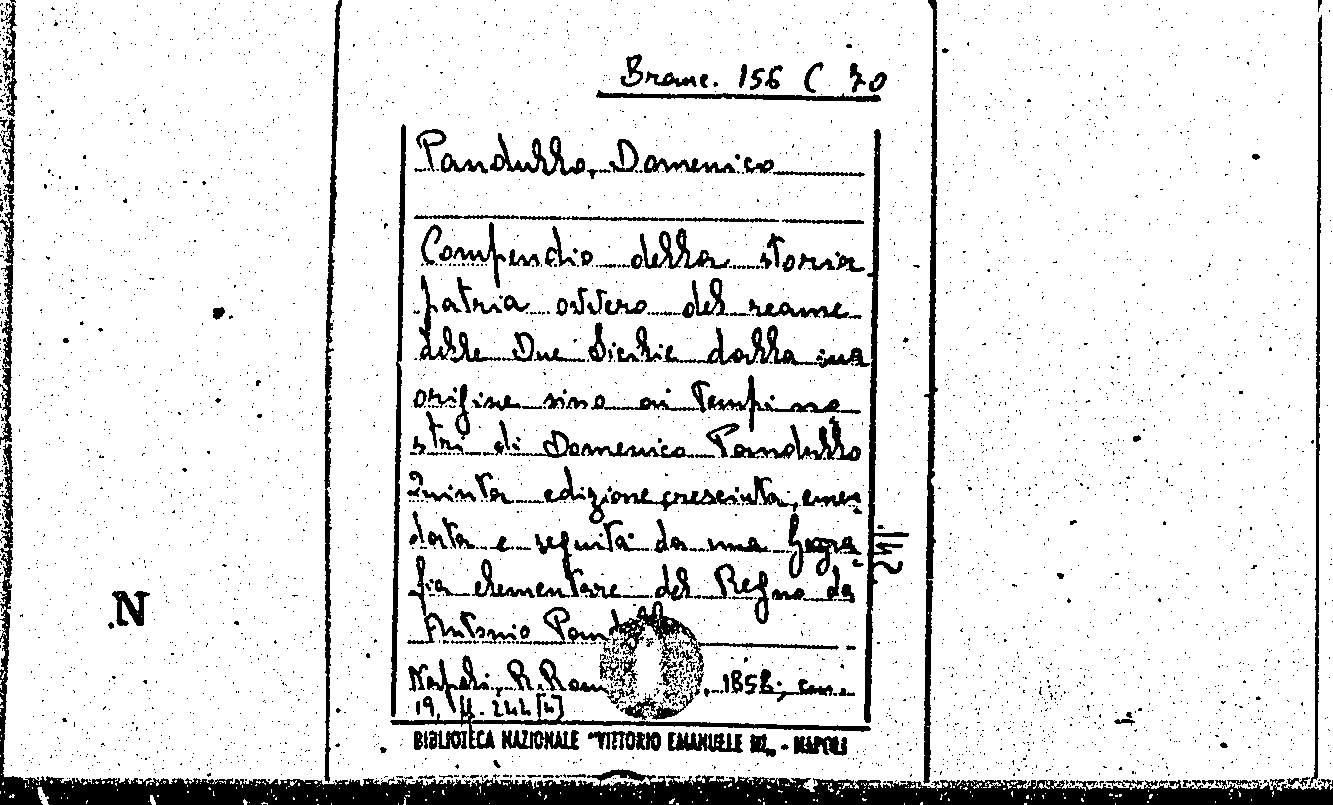 Branc. 156 C 70
Pandullo, Domenico
Compendio della storia
patria ovvero del reame
delle Due Sicilie dalla sua
origine sino ai tempi no
stri di Domenico Pandullo
Quinta edizione cresciuta, emen
data e seguita da una geogra
fia elementare del Regno da
Antonio
Napoli, R. 1858; cm.
19, pp. 244 [4]
BIBLIOTECA NAZIONALE "VITTORIO EMANUELE III" - NAPOLI
N